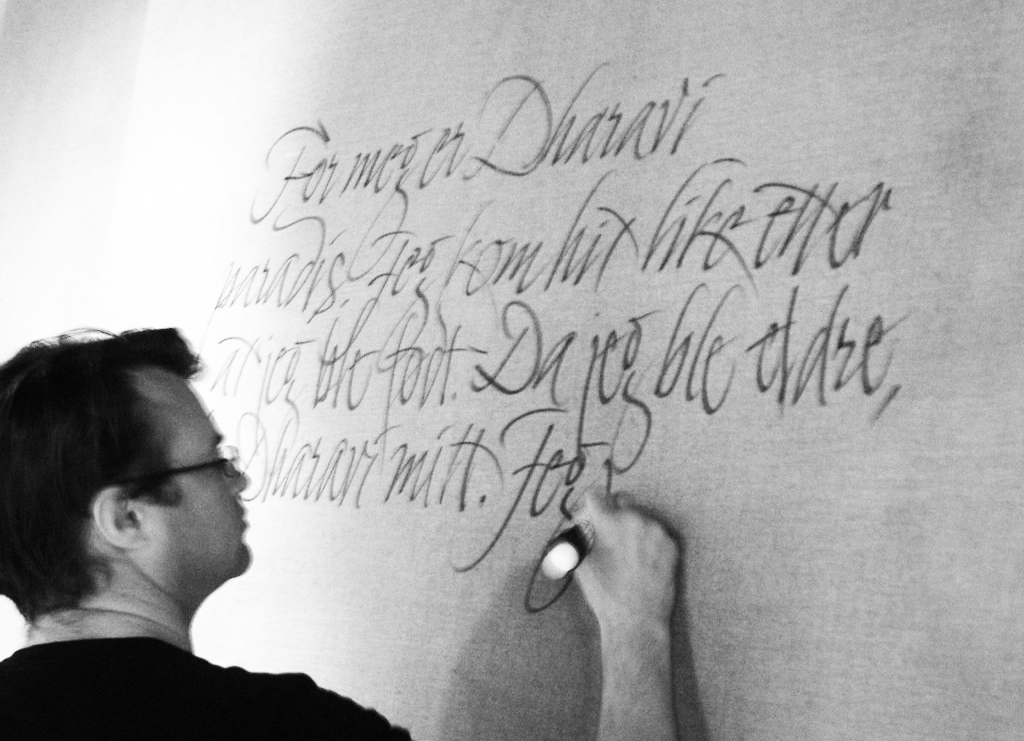 For meg er Dharavi
paradis. Jeg kom hit like etter
at jeg ble født. Da jeg ble eldre,
Dharavi mitt. Jeg